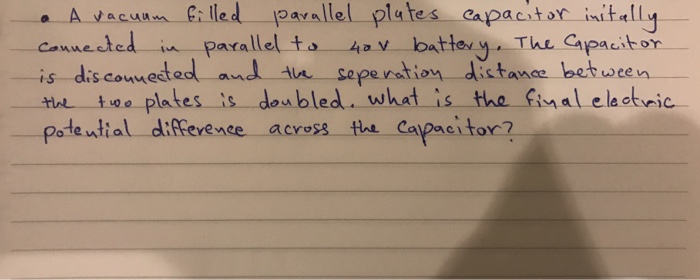 • A vacuum filled parallel plates capacitor initally
connected in parallel to 40V battery. The Capacitor
is disconnected and the seperation distance between
the two plates is doubled. what is the final electric
potential difference across the capacitor?